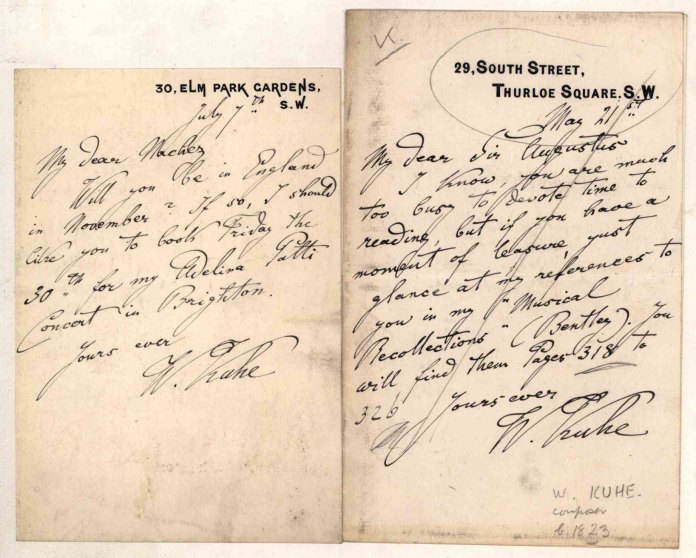 30, ELM PARK GARDENS,
S.W.
July 7th
My dear Nachez
Will you be in England
in November? If so, I should
like you to book Friday the
30th for my Adelina Patti
Concert in Brighton.
Yours ever
W. Kuhe
K.
29, SOUTH STREET,
THURLOE SQUARE. S.W.
May 21st
My dear Sir Augustus
I know you are much
too busy to devote time to
reading, but if you have a
moment of leasure, just
glance at my references to
you in my "Musical
Recollections" (Bentley). You
will find them Pages 318 to
326
Yours ever
W. Kuhe
W. KUHE.
composer
b. 1823